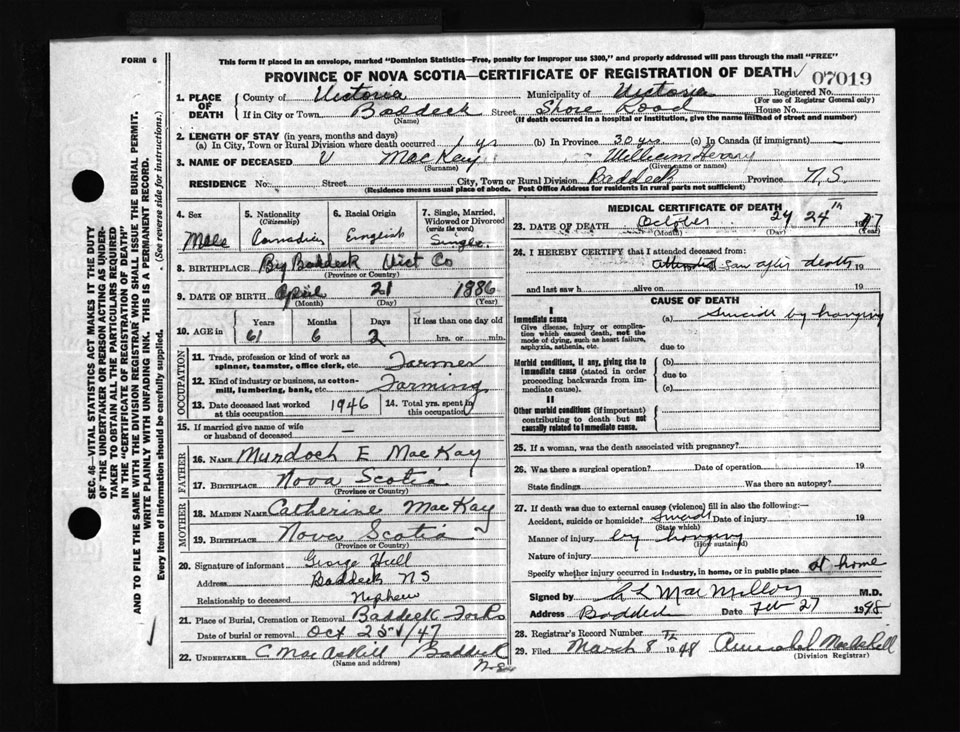 FORM 6
This form if placed in an envelope, marked "Dominion Statistics—Free, penalty for improper use $300," and properly addressed will pass through the mail "FREE"
PROVINCE OF NOVA SCOTIA—CERTIFICATE OF REGISTRATION OF DEATH
07019
1. PLACE OF DEATH County of Victoria Municipality of Victoria Registered No.
(For use of Registrar General only)
If in City or Town Baddeck Street Shore Road House No.
(Name) (If death occurred in a hospital or institution, give the name instead of street and number)
2. LENGTH OF STAY (in years, months and days)
(a) In City, Town or Rural Division where death occurred 1 yr (b) In Province 30 yrs (c) In Canada (if immigrant) —
3. NAME OF DECEASED V MacKay William Henry
(Surname) (Given name or names)
RESIDENCE No. Street City, Town or Rural Division Baddeck Province N.S.
(Residence means usual place of abode. Post Office Address for residents in rural parts not sufficient)
4. Sex Male
5. Nationality (Citizenship) Canadian
6. Racial Origin English
7. Single, Married, Widowed or Divorced (write the word) Single
8. BIRTHPLACE Big Baddeck Vict Co
(Province or Country)
9. DATE OF BIRTH April 21 1886
(Month) (Day) (Year)
10. AGE in Years Months Days If less than one day old
61 6 2 hrs. or min.
OCCUPATION
11. Trade, profession or kind of work as spinner, teamster, office clerk, etc. Farmer
12. Kind of industry or business, as cotton-mill, lumbering, bank, etc. Farming
13. Date deceased last worked at this occupation 1946
14. Total yrs. spent in this occupation
15. If married give name of wife or husband of deceased —
FATHER
16. NAME Murdoch E MacKay
17. BIRTHPLACE Nova Scotia
(Province or Country)
MOTHER
18. MAIDEN NAME Catherine MacKay
19. BIRTHPLACE Nova Scotia
(Province or Country)
20. Signature of informant George Hull
Address Baddeck NS
Relationship to deceased Nephew
21. Place of Burial, Cremation or Removal Baddeck Forks
Date of burial or removal Oct 25/47
22. UNDERTAKER C MacAskill Baddeck N.S.
(Name and address)
MEDICAL CERTIFICATE OF DEATH
23. DATE OF DEATH October 24 24th
(Month) (Day) (Year)
24. I HEREBY CERTIFY that I attended deceased from:
attended saw after death 19
and last saw h alive on 19
CAUSE OF DEATH
I
Immediate cause (a) Suicide by hanging
Give disease, injury or complication which caused death, not the mode of dying, such as heart failure, asphyxia, asthenia, etc.
due to
Morbid conditions, if any, giving rise to immediate cause (stated in order proceeding backwards from immediate cause).
(b)
due to
(c)
II
Other morbid conditions (if important) contributing to death but not causally related to immediate cause.
25. If a woman, was the death associated with pregnancy?
26. Was there a surgical operation? Date of operation 19
State findings Was there an autopsy?
27. If death was due to external causes (violence) fill in also the following:—
Accident, suicide or homicide? Suicid Date of injury 19
(State which)
Manner of injury by hanging
(How sustained)
Nature of injury
Specify whether injury occurred in industry, in home, or in public place at home
Signed by C L MacMillan M.D.
Address Baddeck Date Feb 27
28. Registrar's Record Number
29. Filed March 8th 1948
(Division Registrar)
SEC. 46—VITAL STATISTICS ACT MAKES IT THE DUTY
OF THE UNDERTAKER OR PERSON ACTING AS UNDER-
TAKER TO OBTAIN ALL THE PARTICULARS REQUIRED
IN THE "CERTIFICATE OF REGISTRATION OF DEATH"
AND TO FILE THE SAME WITH THE DIVISION REGISTRAR WHO SHALL ISSUE THE BURIAL PERMIT.
WRITE PLAINLY WITH UNFADING INK. THIS IS A PERMANENT RECORD.
Every item of information should be carefully supplied. (See reverse side for instructions.)